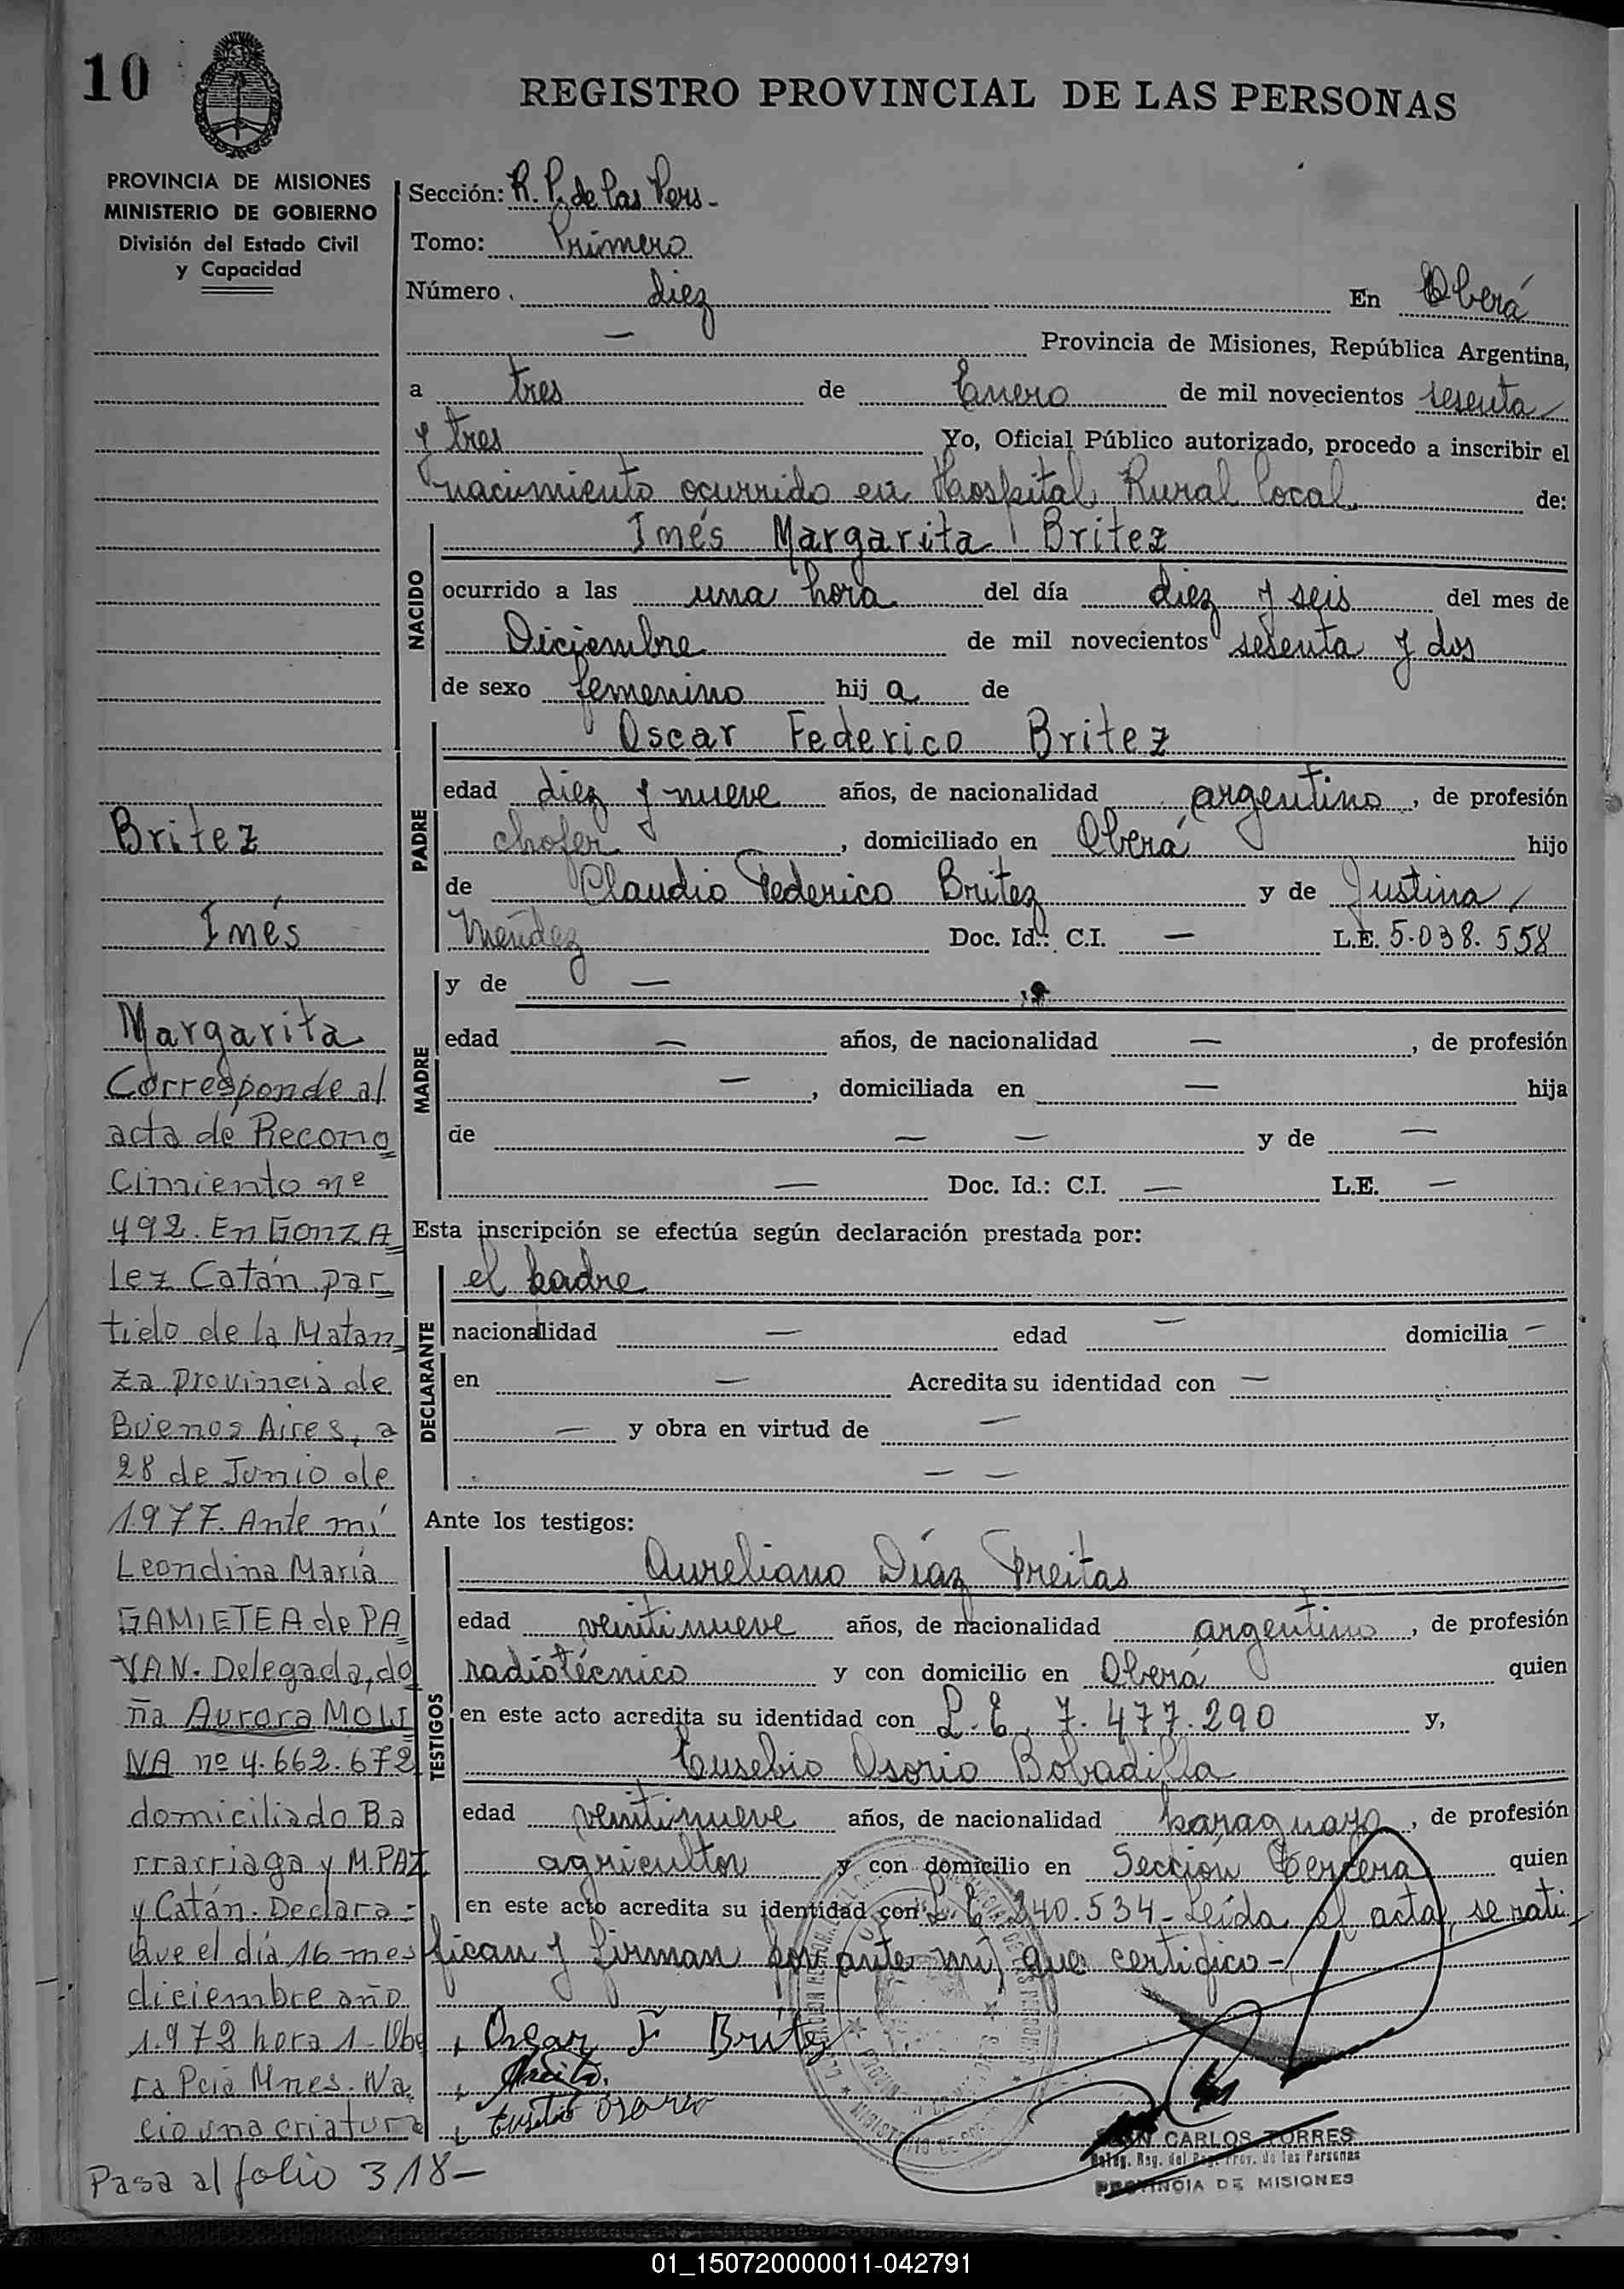 10
REGISTRO PROVINCIAL DE LAS PERSONAS
PROVINCIA DE MISIONES
MINISTERIO DE GOBIERNO
División del Estado Civil
y Capacidad
Sección: R. P. de las Pers-
Tomo: Primero
Número diez En Oberá
— Provincia de Misiones, República Argentina,
a tres de Enero de mil novecientos sesenta
y tres Yo, Oficial Público autorizado, procedo a inscribir el
nacimiento ocurrido en Hospital Rural local de:
NACIDO
Inés Margarita Britez
ocurrido a las una hora del día diez y seis del mes de
Diciembre de mil novecientos sesenta y dos
de sexo femenino hija de
PADRE
Oscar Federico Britez
edad diez y nueve años, de nacionalidad argentino, de profesión
chofer, domiciliado en Oberá hijo
de Claudio Federico Britez y de Justina
Mendez Doc. Id.: C.I. — L.E. 5.038.558
MADRE
y de —
edad — años, de nacionalidad —, de profesión
—, domiciliada en — hija
de — — y de —
— Doc. Id.: C.I. — L.E. —
Esta inscripción se efectúa según declaración prestada por:
DECLARANTE
el padre
nacionalidad — edad — domicilia —
en — Acredita su identidad con —
— y obra en virtud de —
— —
Ante los testigos:
TESTIGOS
Aureliano Díaz Freitas
edad veintinueve años, de nacionalidad argentino, de profesión
radiotécnico y con domicilio en Oberá quien
en este acto acredita su identidad con L.E. 7.477.290 y,
Eusebio Osorio Bobadilla
edad veintinueve años, de nacionalidad paraguayo, de profesión
agricultor y con domicilio en Sección Tercera quien
en este acto acredita su identidad con 340.534- Leída el acta, se rati
fican y firman por ante mí, que certifico-
Oscar F Britez
Freitas.
Eusebio Osorio
CARLOS TORRES
Deleg. Reg. del Reg. Prov. de las Personas
PROVINCIA DE MISIONES
Britez
Inés
Margarita
Corresponde al
acta de Recono
cimiento nº
492. En GonzA
lez Catán par
tido de la Matan
za provincia de
Buenos Aires, a
28 de Junio de
1977. Ante mí
Leondina María
GAMIETEA de PA
VAN. Delegada, do
ña Aurora MOLI
NA nº 4.662.672
domiciliado Ba
rrarriaga y M.PAZ
y Catán. Declara:
Que el día 16 mes
diciembre año
1.972 hora 1- Obe
ra Pcia Mnes. Na
cio una criatura
Pasa al folio 318-
01_150720000011-042791